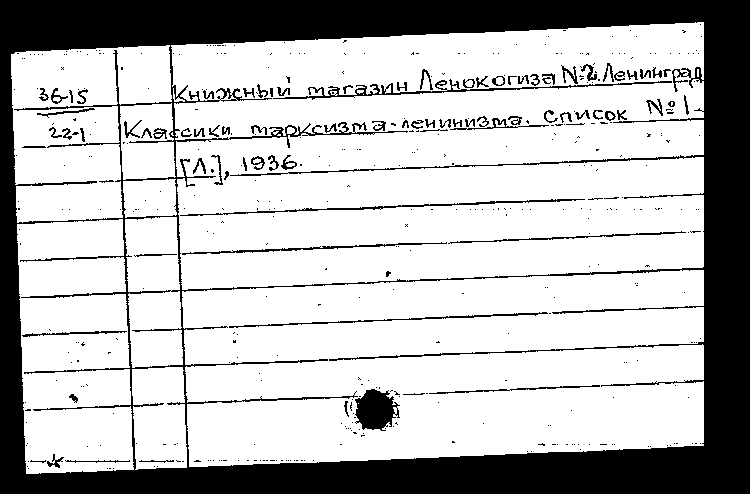 36-15 Книжный магазин Ленокогиза №2. Ленинград
22-1 Классики марксизма-ленинизма. Список № 1.
[Л.], 1936.